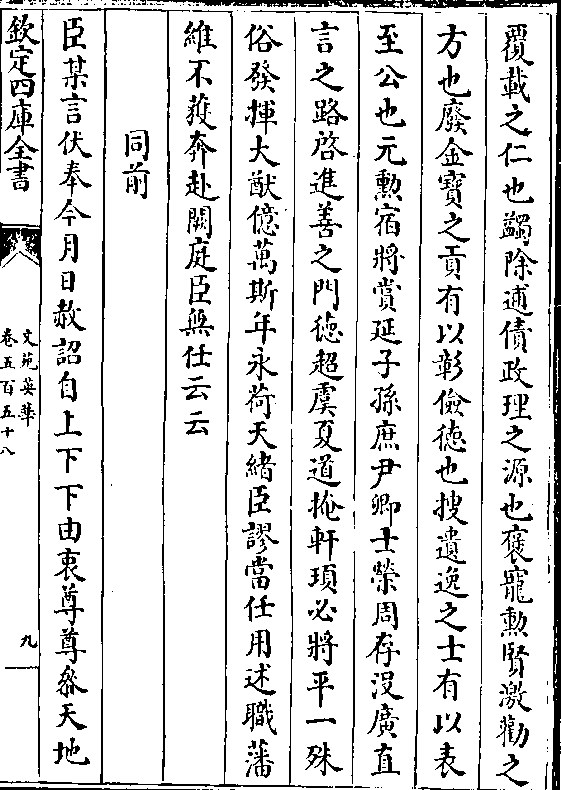 覆載之仁也蠲除逋債政理之源也褒寵勲賢激勸之
方也廢金寶之貢有以彰儉徳也搜遺逸之士有以表
至公也元勲宿將賞延子孫庶尹卿士榮周存没廣直
言之路啓進善之門徳超虞夏道掩軒頊必將平一殊
俗發揮大猷億萬斯年永荷天緒臣謬當任用述職藩
維不獲奔赴闕庭臣無任云云
同前
臣某言伏奉今月日赦詔自上下下由衷尊尊叅天地
欽定四庫全書
文苑英華
卷五百五十八
九